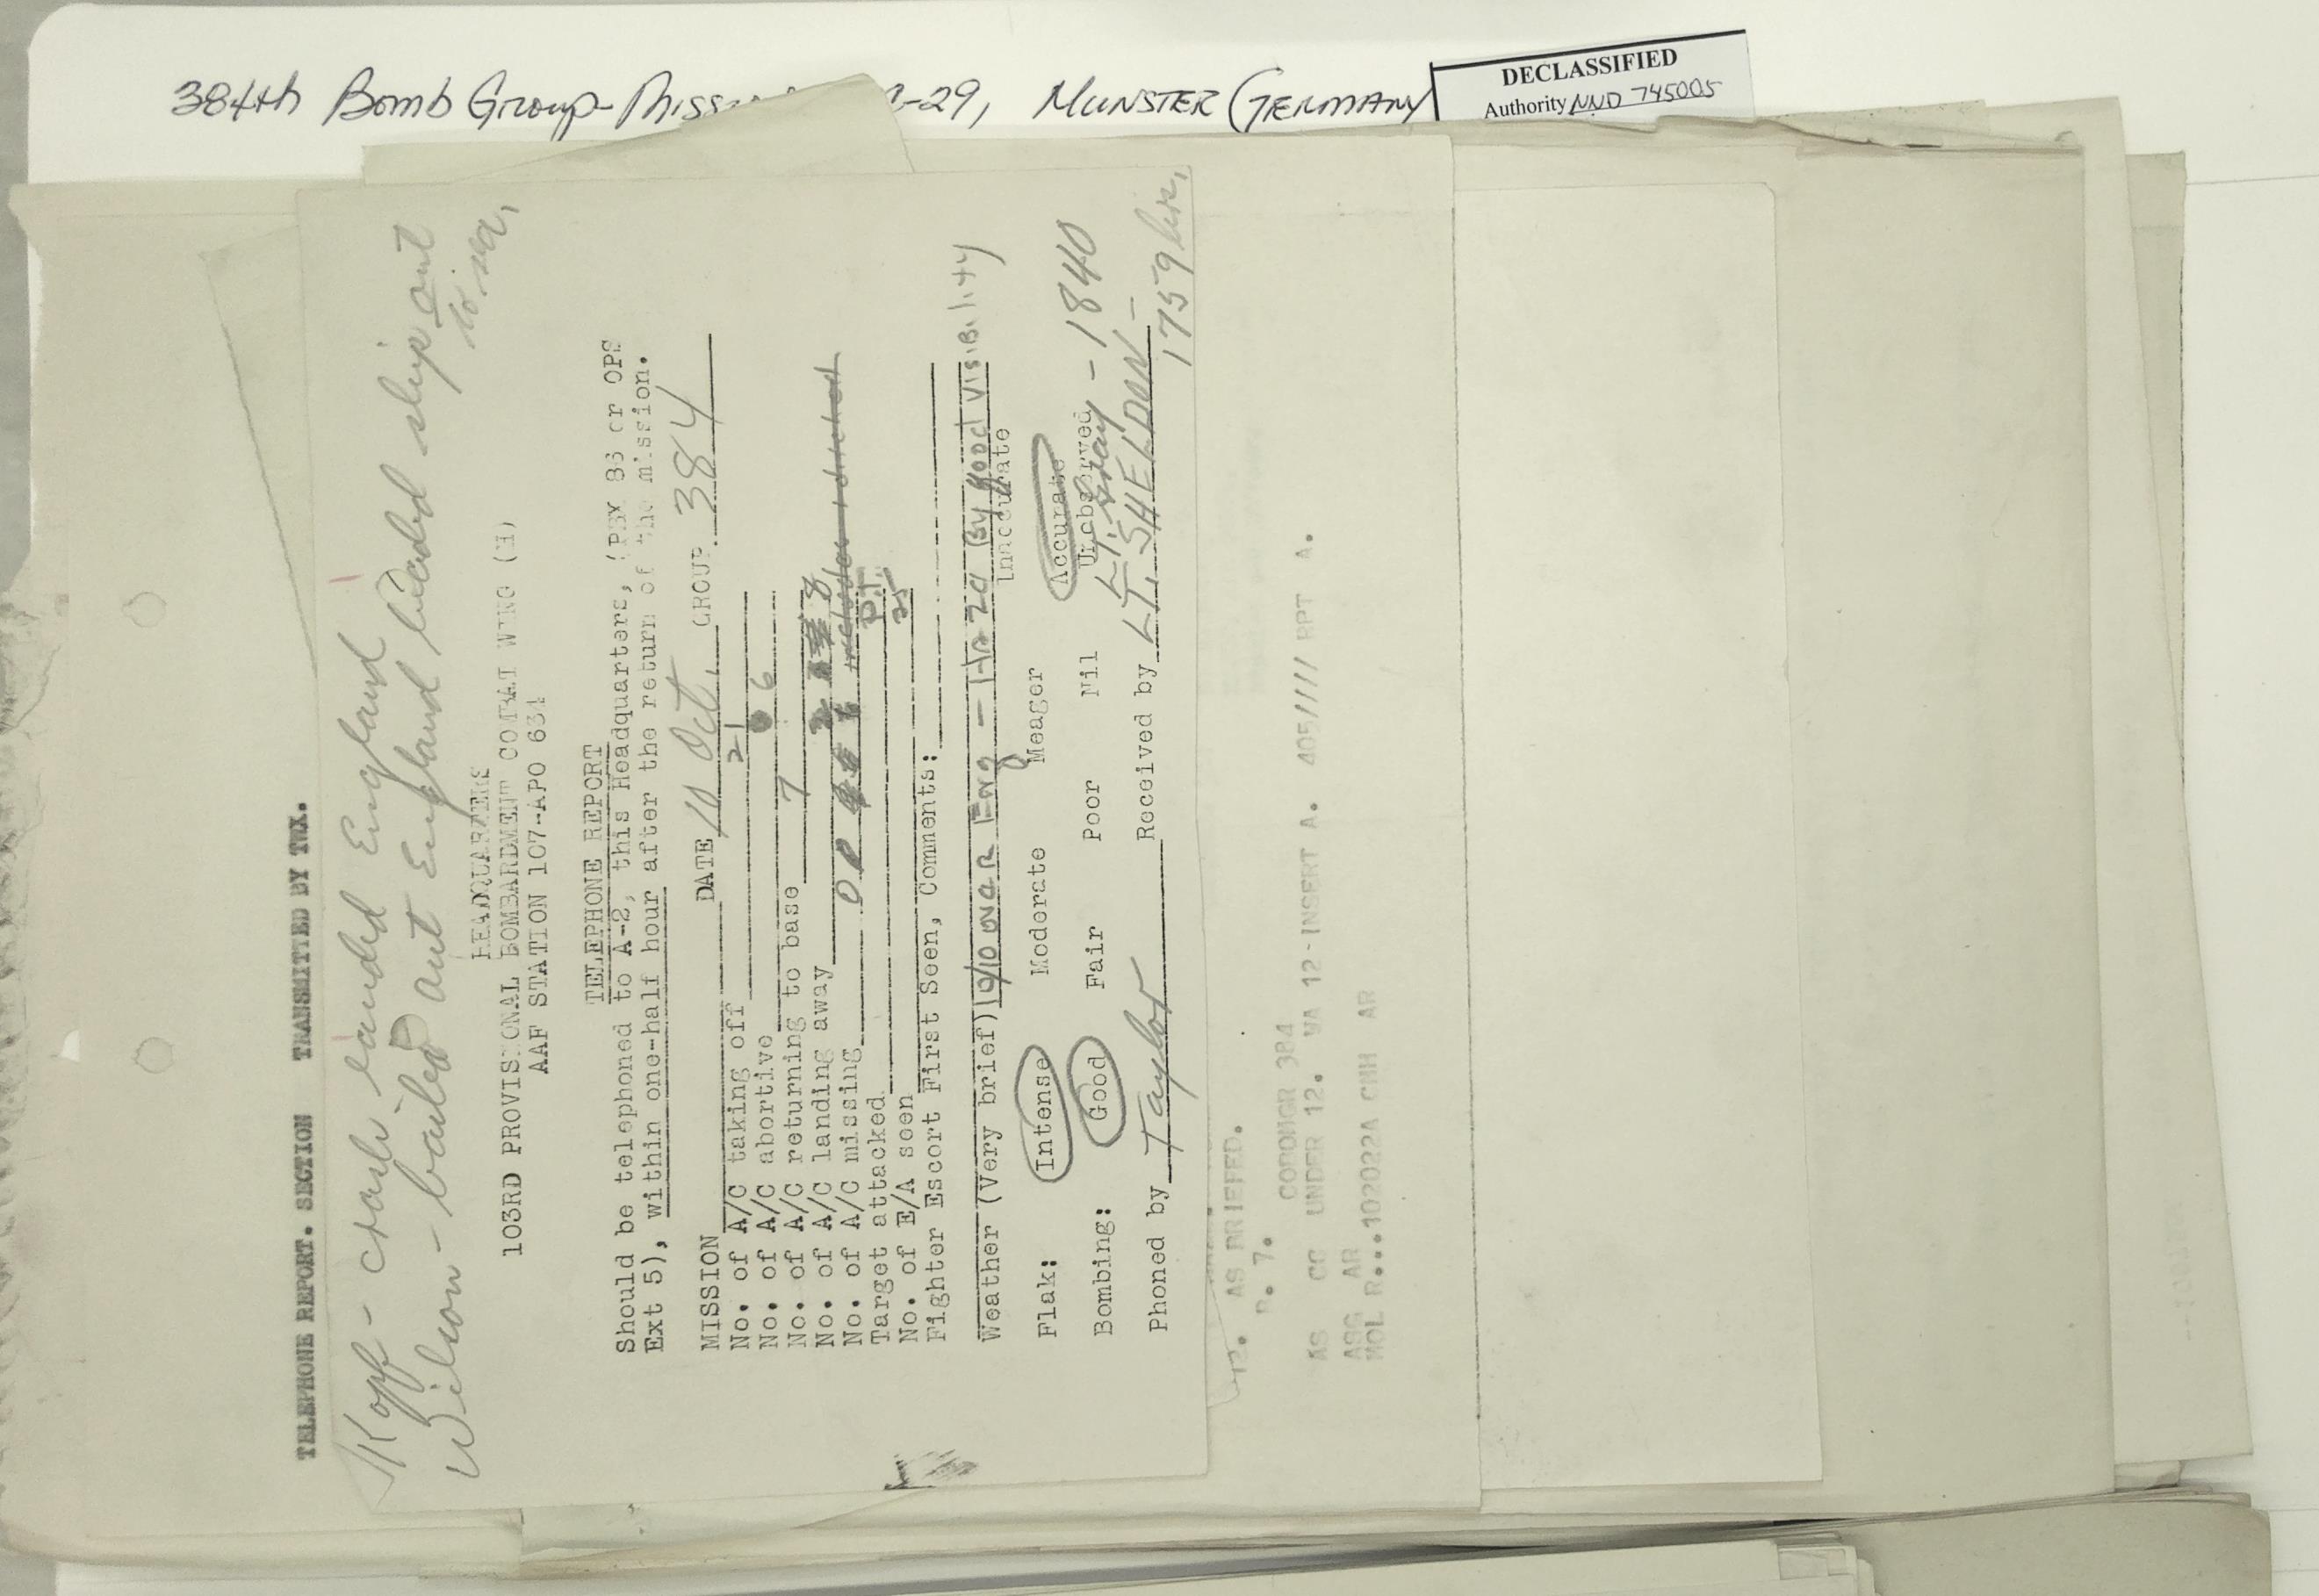 384th Bomb Group-Miss -29, MUNSTER (GERMANY
DECLASSIFIED
Authority NND 745005
TELEPHONE REPORT. SECTION TRANSMITTED BY TWX.
Kopf - crash landed England
Wilson - bailed out England headed ship out
to sea,
HEADQUARTERS
103RD PROVISIONAL BOMBARDMENT COMBAT WING (H)
AAF STATION 107--APO 634
TELEPHONE REPORT
Should be telephoned to A-2, this Headquarters, (PBX 86 or OPS
Ext 5), within one-half hour after the return of the mission.
MISSION DATE 10 Oct. GROUP 384
No. of A/C taking off 21
No. of A/C abortive 6
No. of A/C returning to base 7
No. of A/C landing away 8
No. of A/C missing 0 includes 1 ditched
Target attacked P.T.
No. of E/A seen 25
Fighter Escort First Seen, Comments:
Weather (Very brief) 9/10 over Eng - Hazy By good visibility
Flak: Intense Moderate Meager Accurate Inaccurate
Bombing: Good Fair Poor Nil Unobserved
Lt. Gray - 1840
Phoned by Taylor Received by LT. SHELDON -
1759 hrs.
12. AS BRIEFED.
P. 7.
COBOMGR 384
AS CC UNDER 12. WA 12-INSERT A. 405//// RPT A.
ASG AR
MOL R...102022A CMH AR